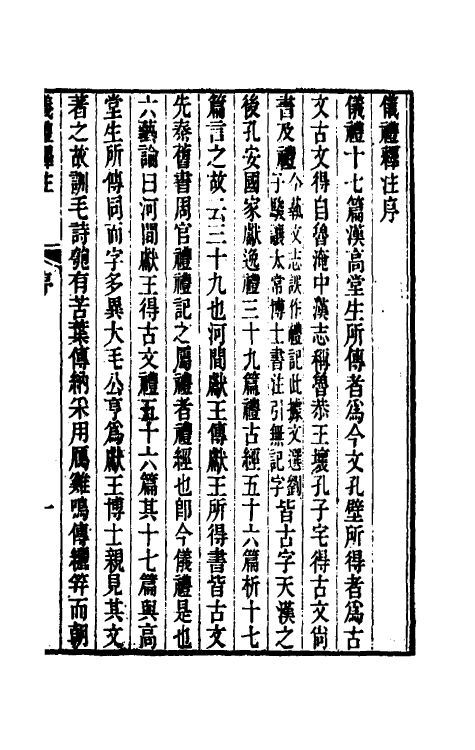 儀禮釋注序
儀禮十七篇漢高堂生所傳者爲今文孔壁所得者爲古
文古文得自魯淹中漢志稱魯恭王壞孔子宅得古文尚
書及禮今藝文志誤作禮記此據文選劉子駿讓太常博士書注引無記字皆古字天漢之
後孔安國家獻逸禮三十九篇禮古經五十六篇析十七
篇言之故云三十九也河間獻王傳獻王所得書皆古文
先秦舊書周官禮禮記之屬禮者禮經也卽今儀禮是也
六藝論曰河間獻王得古文禮五十六篇其十七篇與高
堂生所傳同而字多異大毛公亨爲獻王博士親見其文
著之故訓毛詩匏有苦葉傳納采用鴈雞鳴傳纚笄而朝
儀禮釋注
序
一